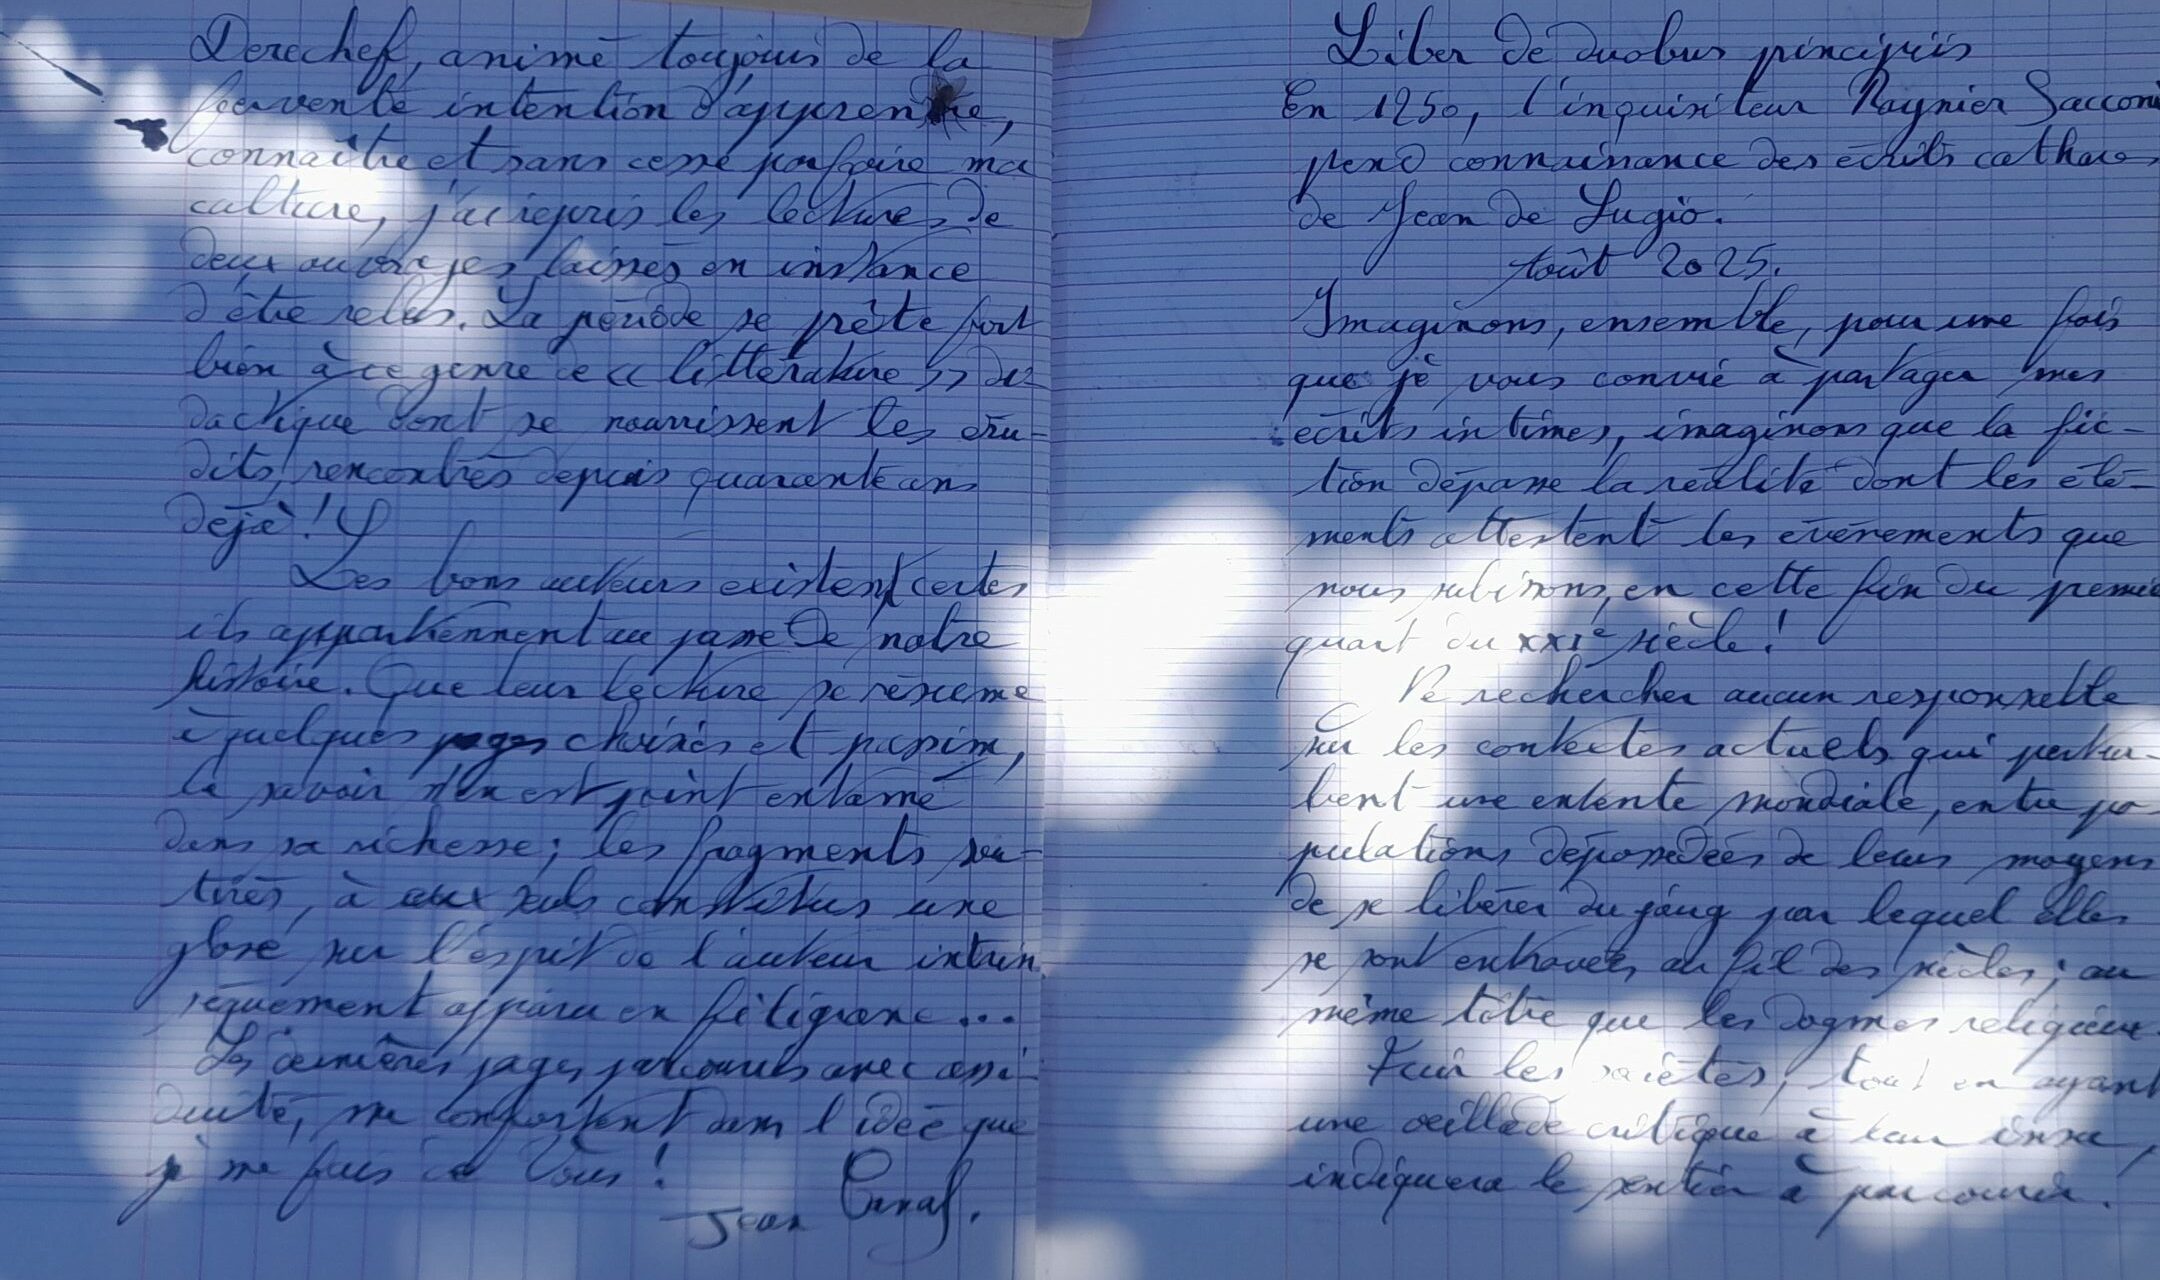 Derechef, animé toujours de la
fervente intention d'apprendre,
connaître et sans cesse parfaire ma
culture, j'ai repris les lectures de
deux ouvrages laissés en instance
d'être relus. La période se prête fort
bien à ce genre de « littérature » di-
dactique dont se nourrissent les éru-
dits, rencontrés depuis quarante ans
déjà !
Les bons auteurs existent, certes
ils appartiennent au passé de notre
histoire. Que leur lecture se résume
à quelques pages choisies et passim,
le savoir n'en est point entamé
dans sa richesse ; les fragments sou-
tirés, à eux seuls constitués une
glose sur l'esprit de l'auteur intrin
sèquement apparu en filigrane...
Les dernières pages parcourues avec assi-
duité, me confortent dans l'idée que
je me fais de Vous !
Jean Canal.
Liber de duobus principiis
En 1250, l'inquisiteur Raynier Sacconi
prend connaissance des écrits cathares
de Jean de Lugio.
Août 2025.
Imaginons, ensemble, pour une fois
que je vous convie à partager mes
écrits intimes, imaginons que la fic-
tion dépasse la réalité dont les élé-
ments attestent les événements que
nous subissons, en cette fin du premier
quart du XXIe siècle !
Ne rechercher aucun responsable
sur les contextes actuels qui pertur-
bent une entente mondiale, entre po-
pulations dépossédées de leurs moyens
de se libérer du joug par lequel elles
se sont entravées au fil des siècles ; au
même titre que les dogmes religieux.
Fuir les sociétés, tout en ayant
une oeillade critique à leur
indiquera le sentier à parcourir.